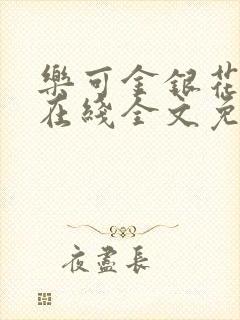 樂可金銀花
在綫全文免
夜盡長